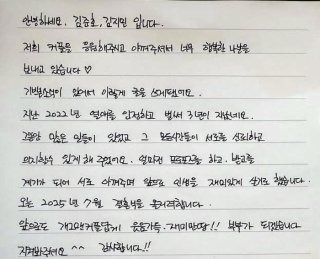 안녕하세요. 김준호, 김지민 입니다.
저희 커플을 응원해주시고 아껴주셔서 너무 행복한 나날을
보내고 있습니다♡
기쁜소식이 있어서 이렇게 글을 쓰게됐어요.
지난 2022년 열애를 인정하고 벌써 3년이 지났네요.
그동안 많은 일들이 있었고 그 모든시간들이 서로를 신뢰하고
의지할수 있게 해 주었어요. 얼마전 프로포즈를 하고, 받고를
계기가 되어 서로 아껴주며 앞으로 인생을 재미있게 살기로 했습니다.
오는 2025년 7월 결혼식을 올리려합니다.
앞으로도 개그맨커플답게 웃음가득. 재미만땅!! 부부가 되겠습니다
지켜봐주세요 ^^ 감사합니다!!